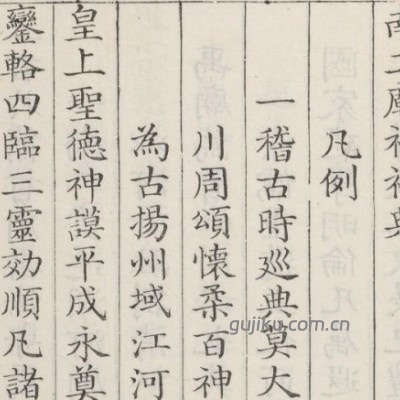 南二廟祀神典
凡例
一稽古時廵典莫大
川周頌懷柔百神
為古揚州域江河
皇上聖德神謨平成永奠
鑾輅四臨三靈効順凡諸
gujiku.com.cn